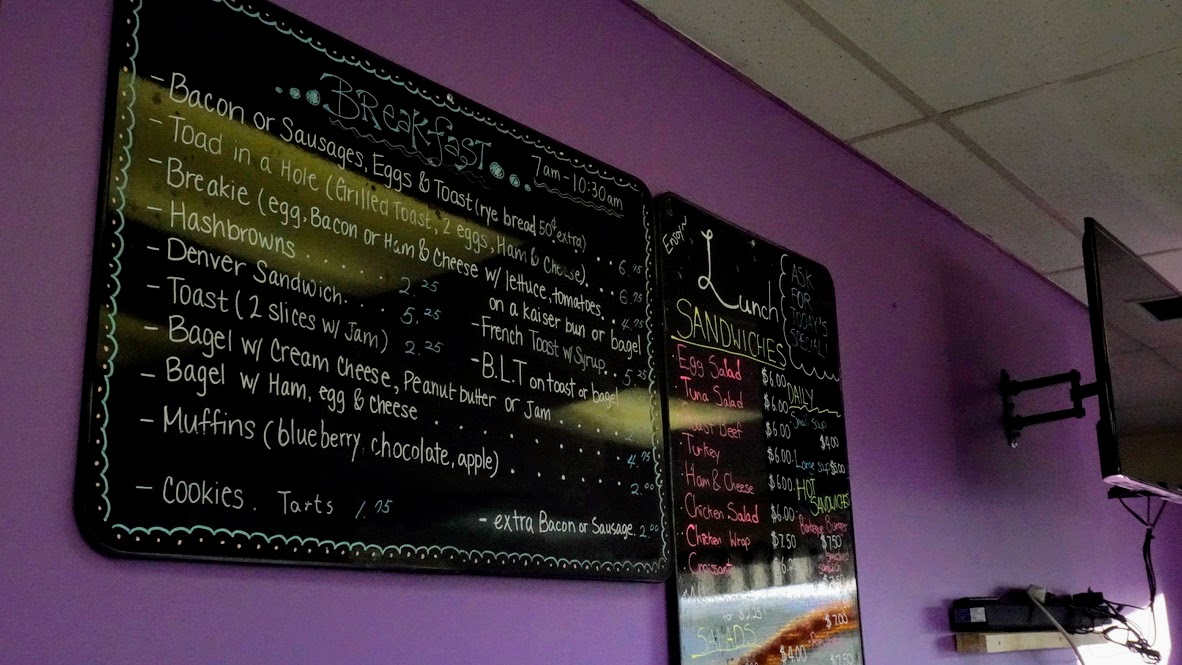 ...BReakfast...
7am-10:30am
- Bacon or Sausages, Eggs & Toast (rye bread 50¢ extra) .. 6.75
- Toad in a Hole (Grilled Toast, 2 eggs, Ham & Cheese) .. 6.75
- Breakie (egg, Bacon or Ham & Cheese w/ lettuce, tomatoes,
on a kaiser bun or bagel
- Hashbrowns ...... 2.25
- Denver Sandwich... 5.25
- French Toast w/ Syrup.. 5.25
- Toast (2 slices w/ Jam) 2.25
- B.L.T on toast or bagel
- Bagel w/ Cream Cheese, Peanut butter or Jam
- Bagel w/ Ham, egg & cheese ........ 4.75
- Muffins (blueberry, chocolate, apple) ...... 2.00
- Cookies. Tarts 1.75
- extra Bacon or Sausage. 2.00
Enjoy
Lunch
ASK
FOR
TODAY'S
SPECIAL!
SANDWICHES
Egg Salad $6.00
Tuna Salad $6.00
Roast Beef $6.00
Turkey $6.00
Ham & Cheese $6.00
Chicken Salad $6.00
Chicken Wrap $7.50
Croissant
DAILY
Small soup
$4.00
Large soup $5.00
HOT
SANDWICHES
$7.50
SALADS
$7.00
$4.00
$7.50